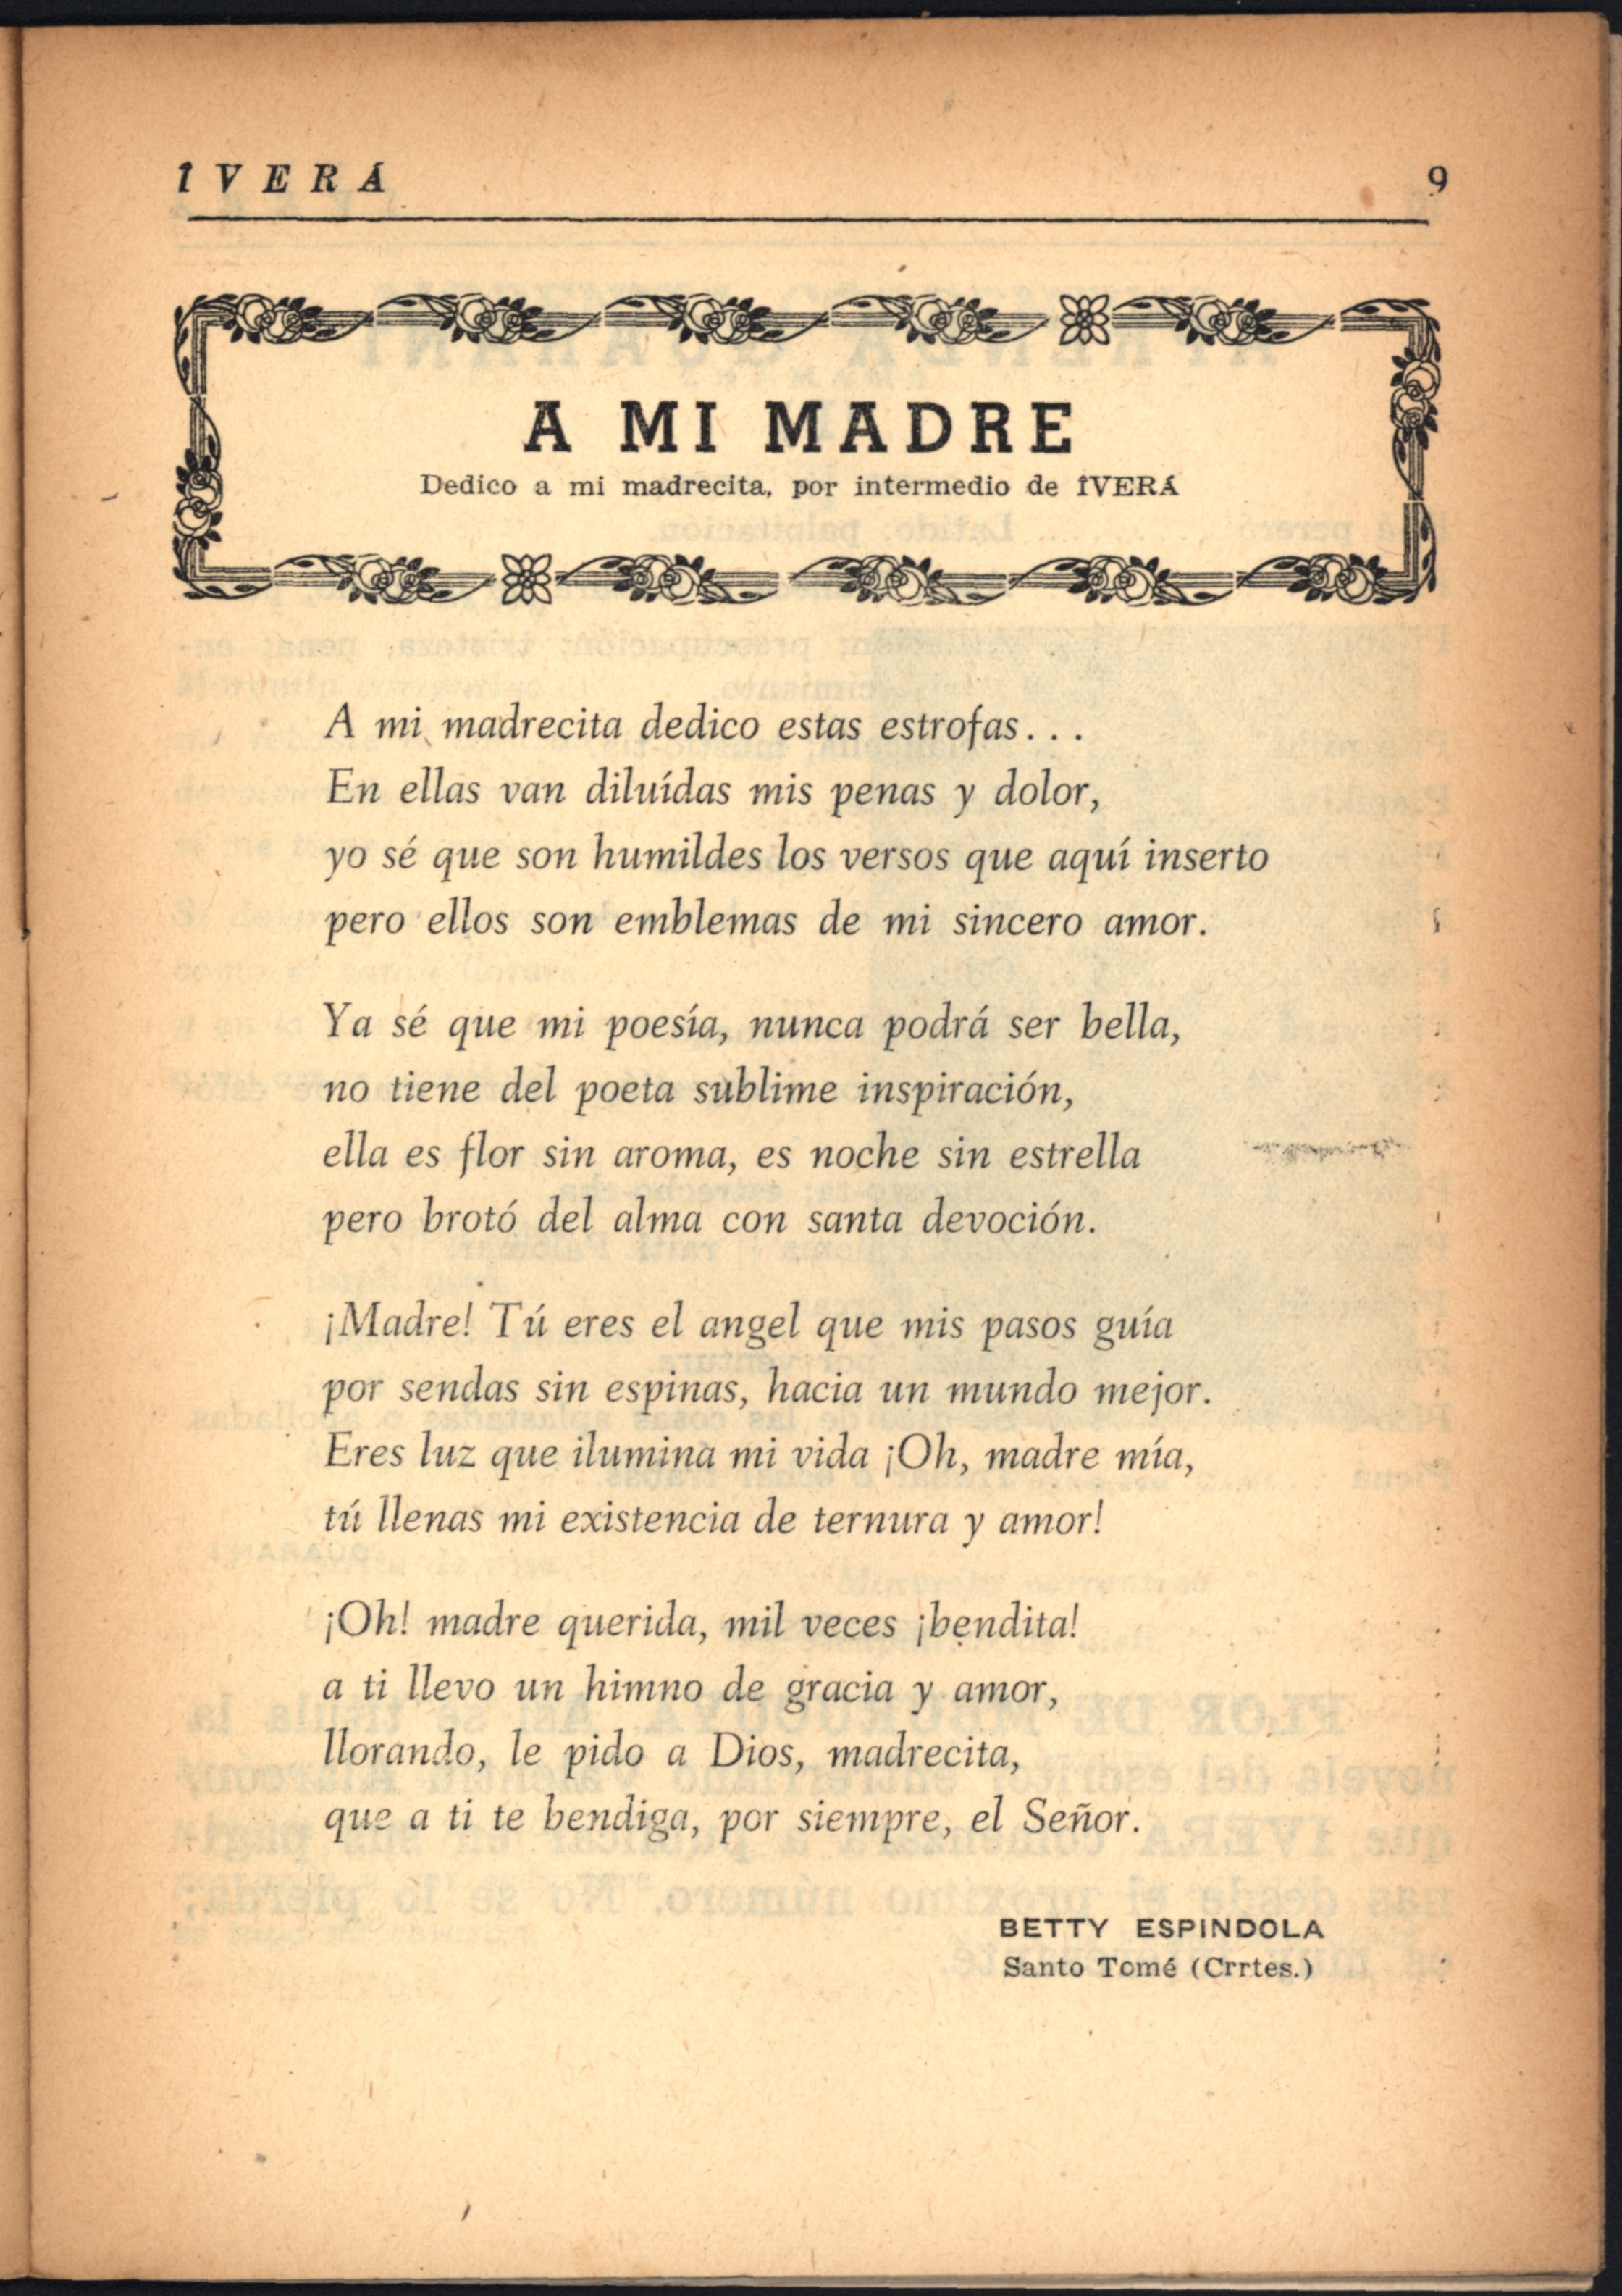 ÎVERÁ
9
A MI MADRE
Dedico a mi madrecita, por intermedio de ÎVERÁ
A mi madrecita dedico estas estrofas...
En ellas van diluídas mis penas y dolor,
yo sé que son humildes los versos que aquí inserto
pero ellos son emblemas de mi sincero amor.
Ya sé que mi poesía, nunca podrá ser bella,
no tiene del poeta sublime inspiración,
ella es flor sin aroma, es noche sin estrella
pero brotó del alma con santa devoción.
¡Madre! Tú eres el angel que mis pasos guía
por sendas sin espinas, hacia un mundo mejor.
Eres luz que ilumina mi vida ¡Oh, madre mía,
tú llenas mi existencia de ternura y amor!
¡Oh! madre querida, mil veces ¡bendita!
a ti llevo un himno de gracia y amor,
llorando, le pido a Dios, madrecita,
que a ti te bendiga, por siempre, el Señor.
BETTY ESPINDOLA
Santo Tomé (Crrtes.)